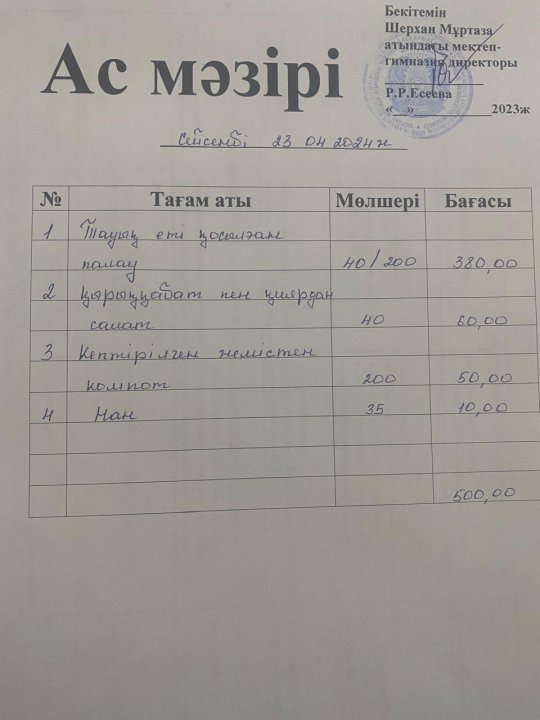 Бекітемін
Шерхан Мұртаза
атындағы мектеп-
гимназия директоры
Р.Р.Есеева
«__»____________2023ж
Ас мәзірі
Сейсенбі 23 04 2024ж
№ Тағам аты Мөлшері Бағасы
1 Тауық еті қосылған
палау 40/200 380,00
2 Қырыққабат пен қиярдан
салат 40 60,00
3 Кептірілген жемістен
компот 200 50,00
4 Нан 35 10,00
500,00